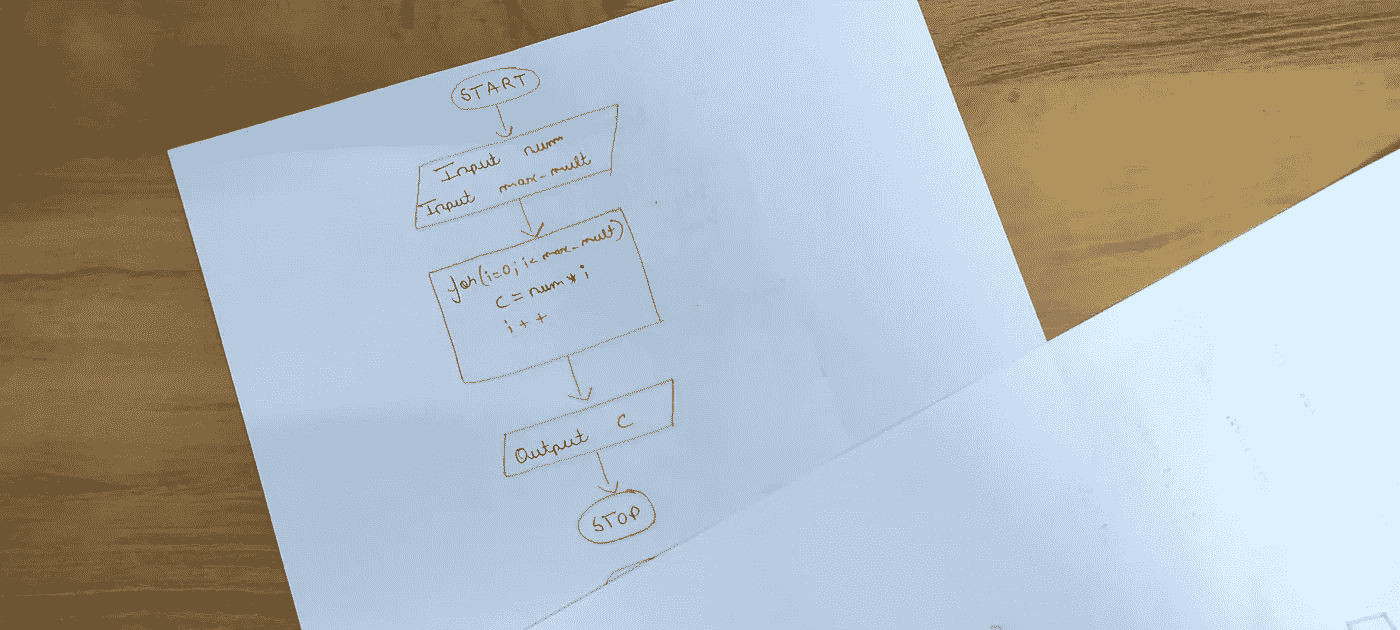 START
Input num
Input max-mult
for(i=0; i< max-mult)
C = num * i
i++
Output C
STOP